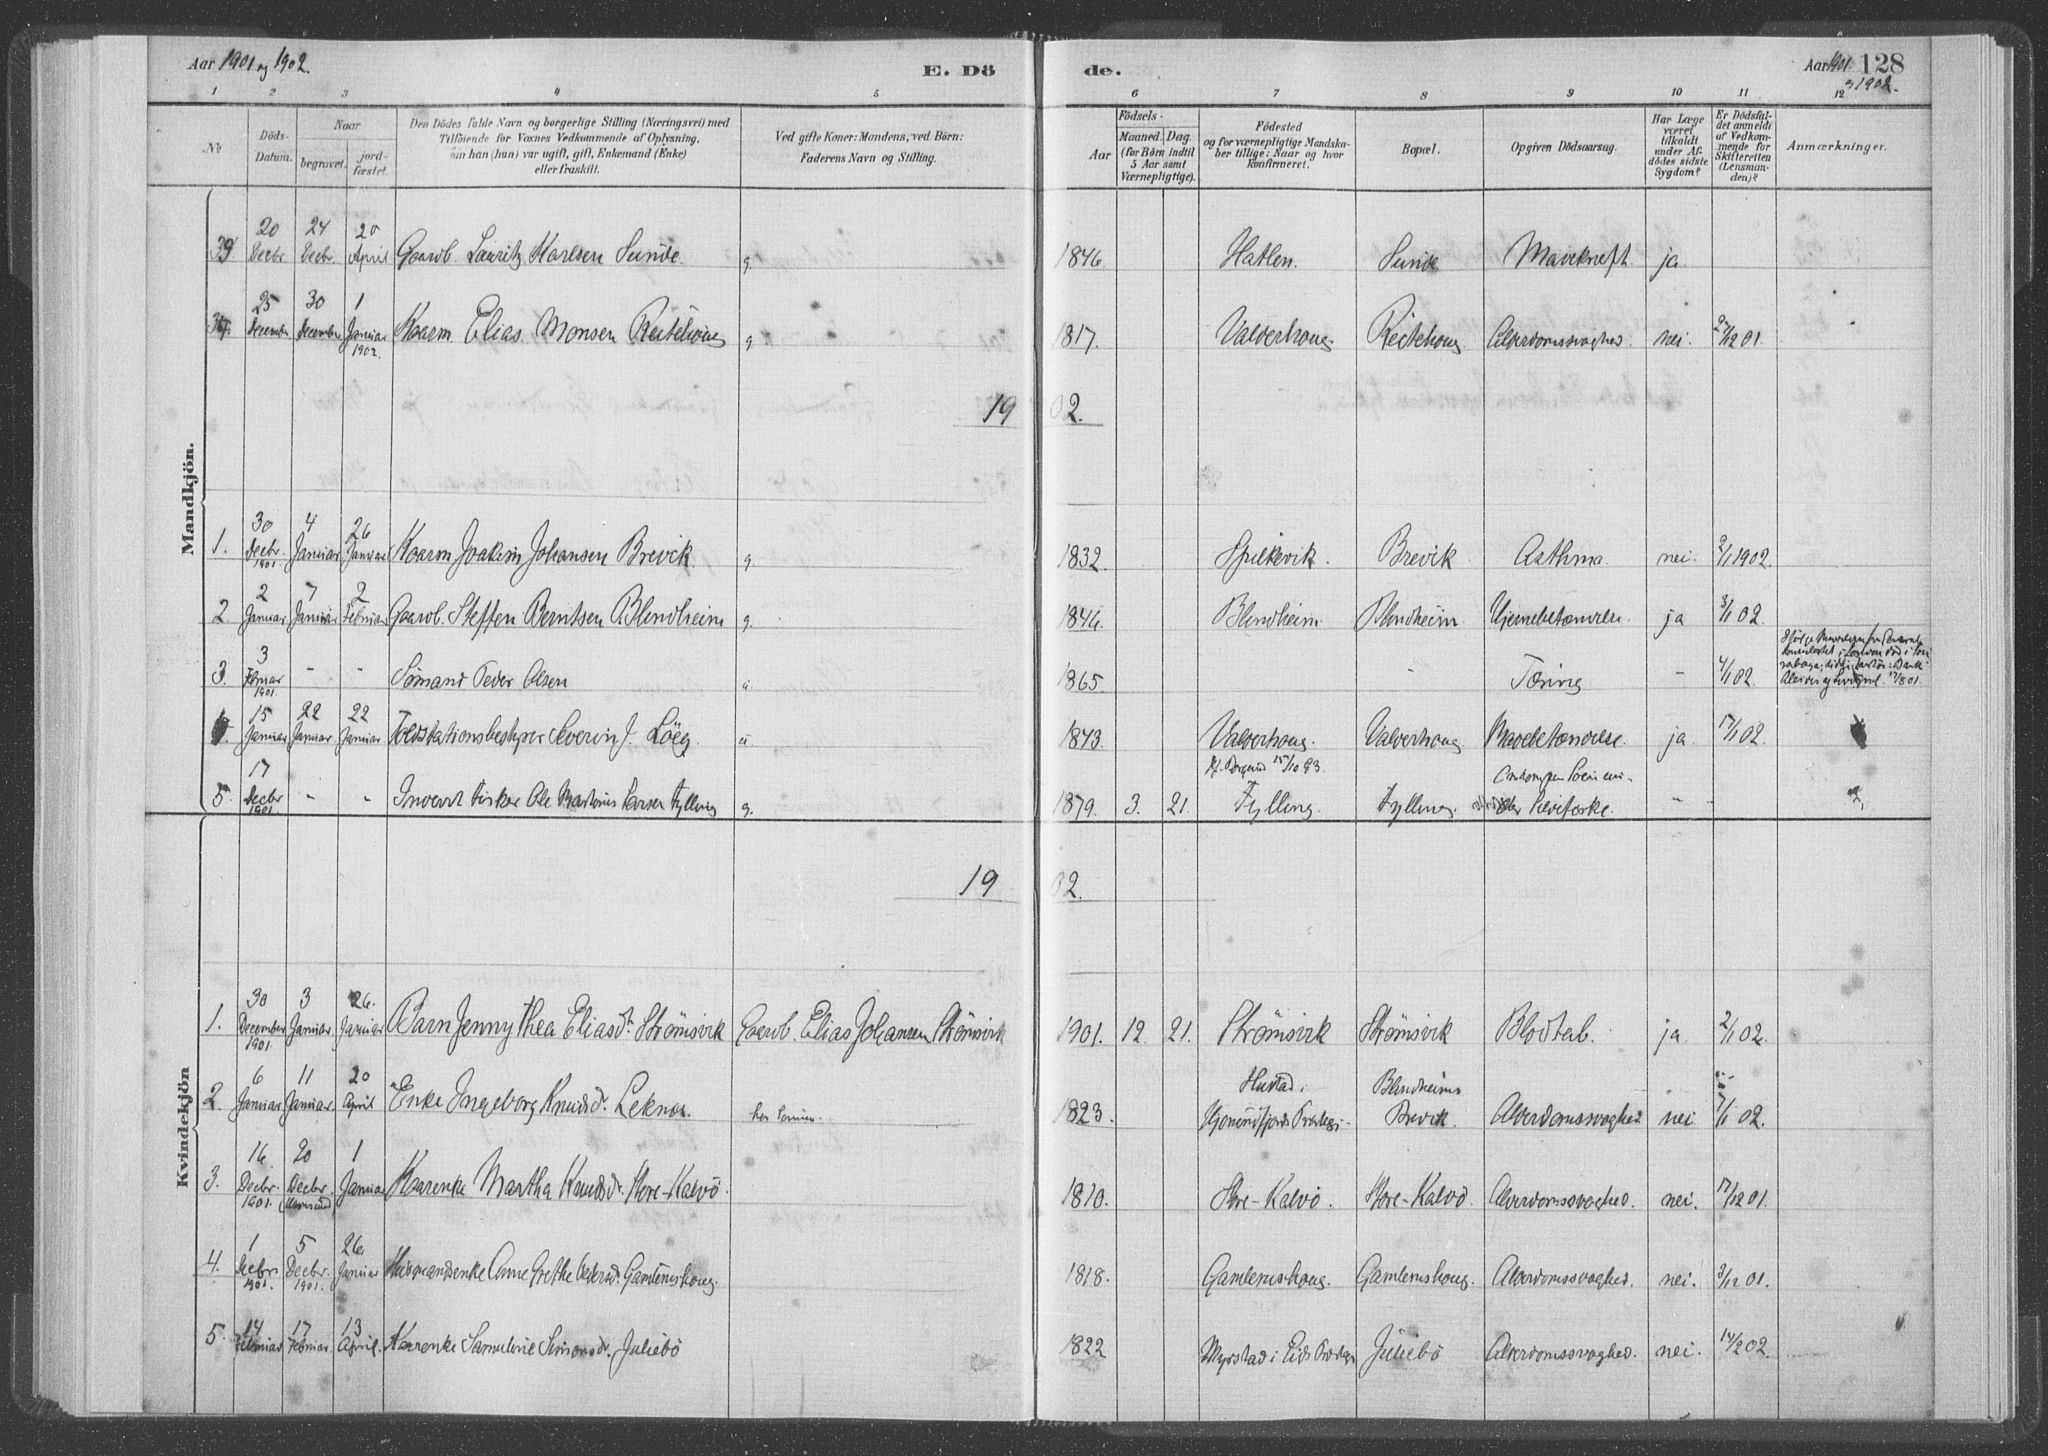 Aar 1901 og 1902.
E. Dö
de.
Aar 1901
128
og 1902.
1 2 3 4 5 6 7 8 9 10 11 12
No
Döds-
Datum.
Naar
begravet.
jord-
fæstet.
Den Dödes fulde Navn og borgerlige Stilling (Næringsvei) med
Tilföiende for Voxnes Vedkommende af Oplysning,
om han (hun) var ugift, gift, Enkemand (Enke)
eller fraskilt.
Ved gifte Koner: Mandens, ved Börn:
Faderens Navn og Stilling.
Aar
Födsels-
Maaned. Dag.
(for Börn indtil
5 Aar samt
Værnepligtige).
Födested
og for værnepligtige Mandska-
ber tillige: Naar og hvor
konfirmeret.
Bopæl.
Opgiven Dödsaarsag.
Har Læge
været
tilkaldt
under Af-
dödes sidste
Sygdom?
Er Dödsfal-
det anmeldt
af Vedkom-
mende for
Skifteretten
(Lensman-
den)?
Anmærkninger.
Mandkjön.
20 Decbr. 24 Decbr. 20 April Gaardb. Lauritz Karlsen Sunde. g. 1846. Hatlen. Sunde Mavekreft. ja
25 December 30 December 1 Januar 1902. Kaarm. Elias Monsen Reitehoug g. 1817. Valderhoug. Reitehoug Alderdomssvaghed. nei. 27/12 01.
19 02.
1. 30 Decbr. 1901. 4 Januar 26 Januar Kaarm. Joakim Johansen Brevik g. 1832. Spilkevik. Brevik Asthma. nei. 2/1 1902.
2 2 Januar 7 Januar 2 Februar Gaardb. Steffen Berntsen Blindheim g. 1846. Blindheim Blindheim Hjernebetændelse ja 3/1 02.
3. 3 Februar 1901. - - Sömand Peder Olsen u. 1865. - Tæring - 4/1 02.
15 Januar 22 Januar 22 Januar Toldstationsbestyrer Severin J. Löeg. u 1843. Valderhoug. Valderhoug Mavebetændelse. ja 17/1 02.
5. 17 Decbr 1901 - - Inderst Fisker Ole Martinus Larsen Fylling g. 1879. 3. 21. Fylling. Fylling. Sildefiske. - -
19 02.
Kvindekjön
1. 30 December 1901. 3 Januar 26. Januar Barn Jenny Thea Eliasd. Strömsvik Gaardb. Elias Johansen Strömsvik 1901. 12. 21. Strömsvik Strömsvik Blodtab. ja 2/1 02.
2. 6 Januar 11 Januar 20 April Enke Ingeborg Knudsd. Leknes. 1823. Hustad i Hjörundfjords Præstegj. Blindheims Brevik. Alderdomssvaghed nei 7/1 02.
3. 16 Decbr. 1901. 20 Decbr. 1 Januar Kaarenke Martha Knudsd. Store-Kalvö. 1810. Store-Kalvö. Store-Kalvö. Alderdomssvaghed. nei. 17/12 01.
4. 1 Decbr. 1901. 5 Decbr. 1901. 26 Januar Husmandsenke Anne Grethe Pedersd. Gamlemshoug. 1818. Gamlemshoug. Gamlemshoug. Alderdomssvaghed. nei. 3/12 01.
5. 14 Februar 17 Februar 13 April. Kaarenke Samuline Simonsd. Juliebö 1822 Myrstad i Eids Præstegj. Juliebö Alderdomssvaghed. nei. 14/2 02.